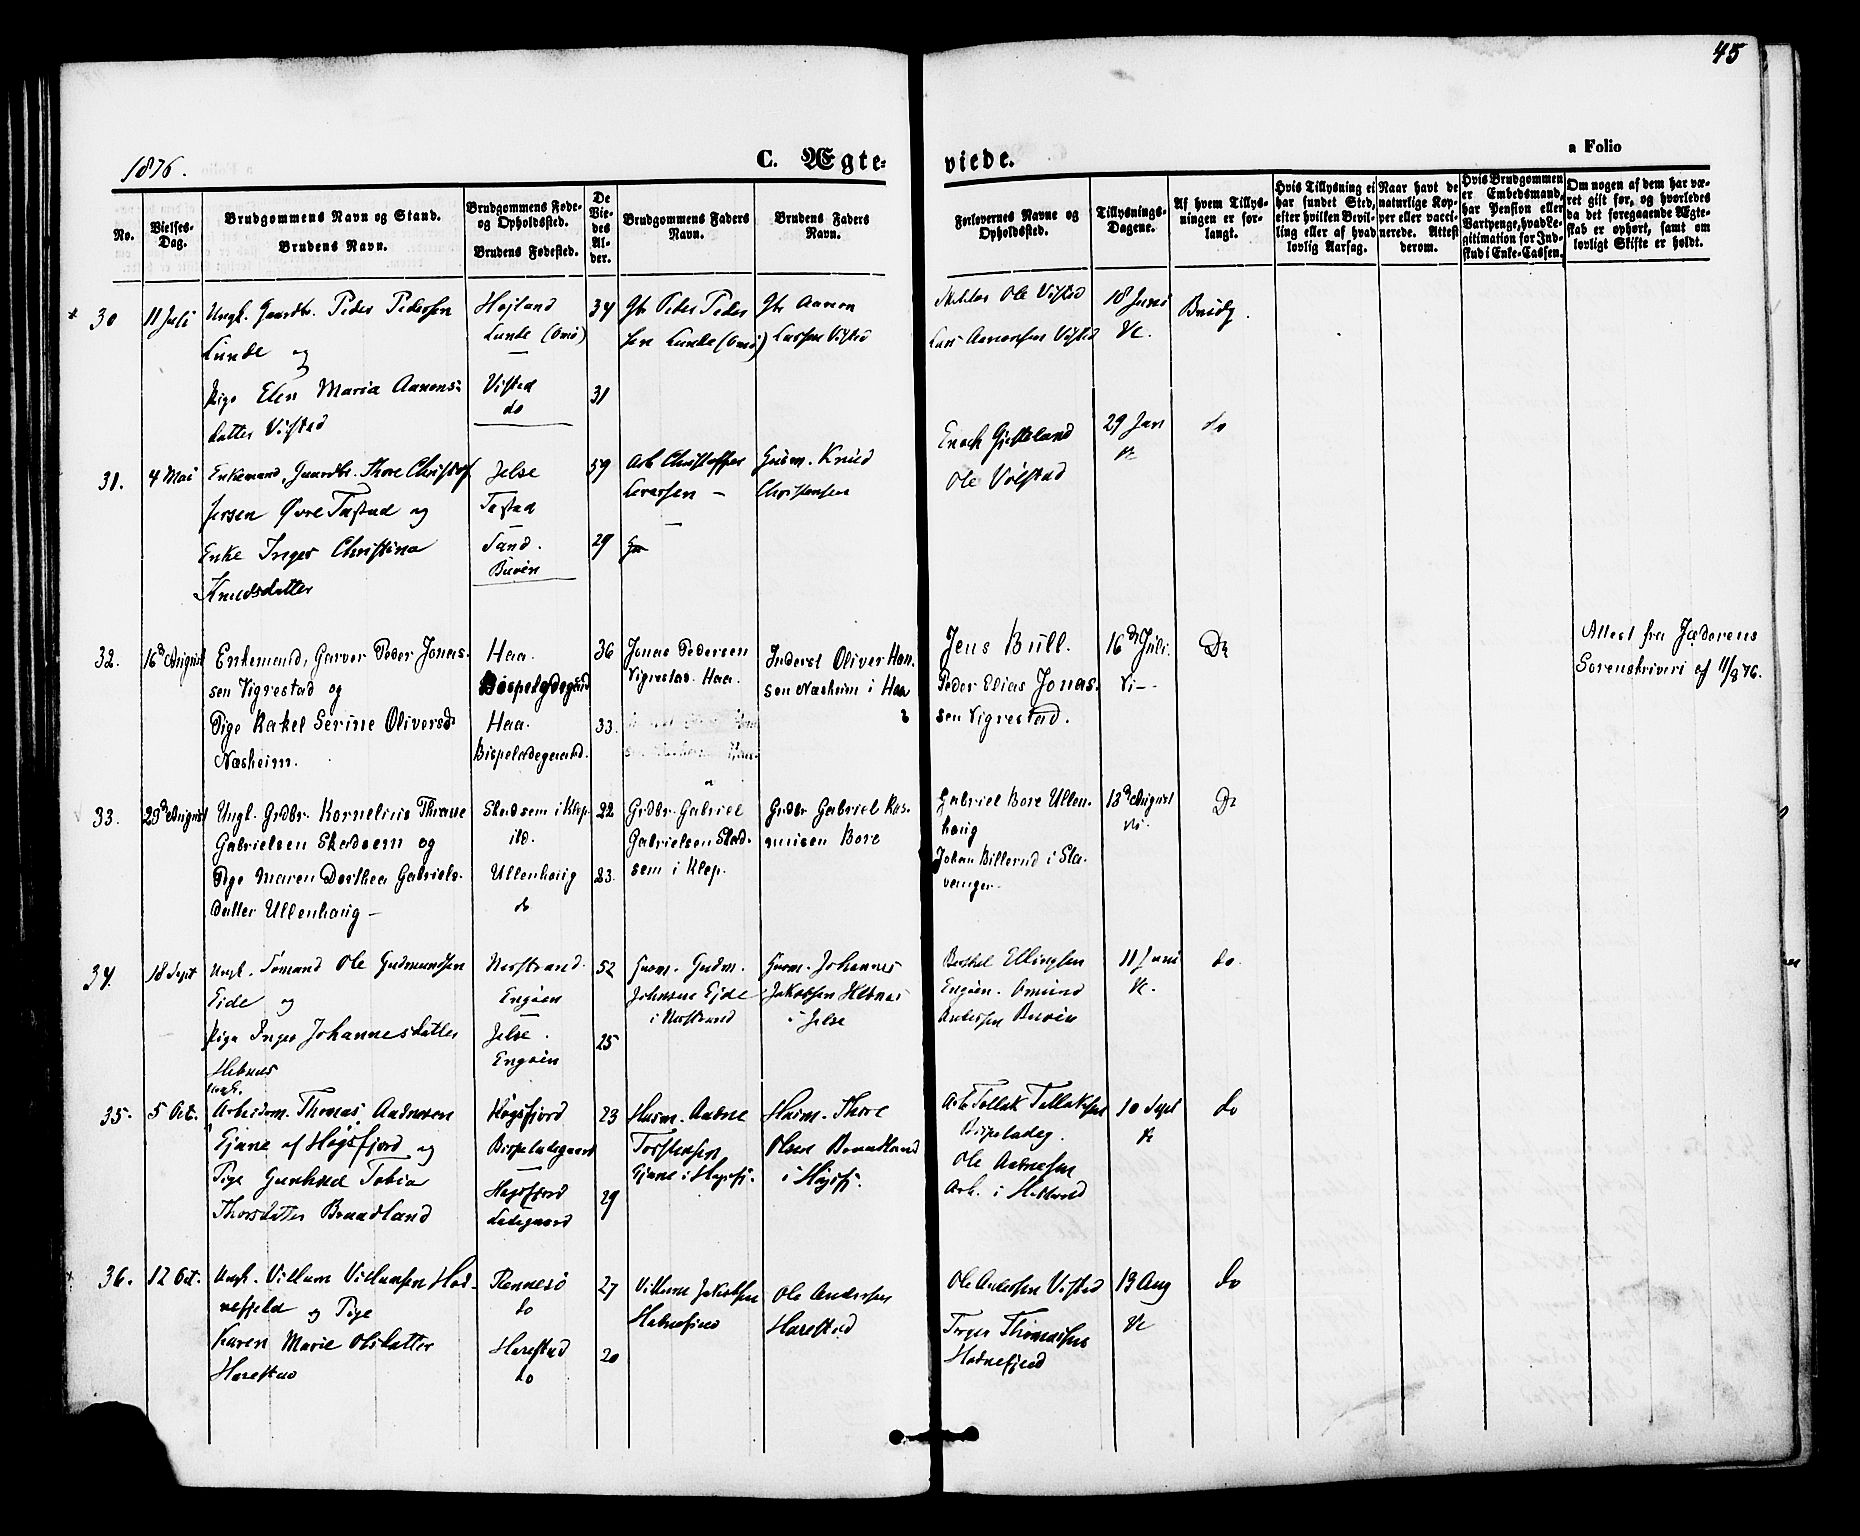 45
1876.
C. Ægteviede.
a Folio
No.
Vielses-Dag.
Brudgommens Navn og Stand.
Brudens Navn.
Brudgommens Føde- og Opholdssted.
Brudens Fødested.
De Viedes Alder.
Brudgommens Faders Navn.
Brudens Faders Navn.
Forlovernes Navne og Opholdssted.
Tillysnings-Dagene.
Af hvem Tillysningen er forlangt.
Hvis Tillysning ei har fundet Sted, efter hvilken Bevilling eller af hvad lovlig Aarsag.
Naar havt de naturlige Kopper eller vaccinerede. Attest derom.
Hvis Brudgommen er Embedsmand, har Pension eller Vartpenge, hvad Legitimation for Indskud i Enke-Cassen.
Om nogen af dem har været gift før, og hvorledes da det foregaaende Ægteskab er ophørt, samt om lovligt Skifte er holdt.
30
11 Juli
Ungk. Gaardbr. Peder Pedersen
Lunde og
Pige Elen Maria Aanens-
datter Vistad
Højland
Lunde (Omø)
Vistad
do
34
31
Gb Peder Peder
sen Lunde (Omø)
Gb Aanon
Larsen Vistad
Ole Vistad
Lars Aanonsen Vistad
18 Juni
&c.
Brudg.
31.
4 Mai
Enkemand, Gaardbr. Thore Christof
fersen Øvre Tastad og
Enke Inger Christina
Knudsdatter
Jelse
Tastad
Sand.
Buøen
59
29
Arb Christoffer
Iversen –
Husm. Knud
Christensen
Enok
Ole Volstad
29 Jan
&c
do
32.
16d August
Enkemand, Garver Peder Jonas-
sen Vigrestad og
Pige Rakel Serine Oliversd.
Næsheim.
Haa.
Bispeladegaard
Haa.
Bispeladegaard.
36
33.
Jonas Pedersen
Vigrestad. Haa.
Inderst Oliver Han-
sen Næsheim i Haa
Jens Bull.
Peder Elias Jonas-
sen Vigrestad.
16d Juli.
Do
Attest fra Jæderens
Sorenskriveri af 11/8 76.
33.
29d August
Ungk. Grdbr. Kornelius Thrane
Gabrielsen Skadsem og
Pige Maren Dorthea Gabriels-
datter Ullenhaug –
Skadsem i Klep
ibd.
Ullenhaug
do
22
23.
Grdbr. Gabriel
Gabrielsen Skad-
sem i Klep.
Grdbr Gabriel Ras-
musen Bore
Gabriel Bore Ullen-
haug
Johan Billerud i Sta-
vanger.
13d August
Do
34.
18 Sept
Ungk. Sømand Ole Gudmundsen
Eide og
Pige Inger Johannesdatter
Hebnes
Nerstrand.
Engøen
Jelse.
Engøen
52
25
Husm. Gudm.
Johnsen Ejde
i Nerstrand
Husm. Johannes
Jakobsen Hebnes
i Jelse
Berthel Ellingsen
Engøen. Omund
Andersen Buøen
11 Juni
&c.
do.
35.
5 Oct.
Ungk.
Arbeidsm. Thomas Aadnesen
Gjane af Høgsfjord og
Pige Gunhild Tobia
Thorsdatter Braadland
Høgsfjord
Bispeladegaard
Høgsfjord
Ladegaard
23
29
Husm. Aadne
Torstensen
Gjane i Høgsfj.
Husm. Thore
Olsen Braadland
i Høgsfj.
Arb Tollak Tollaksen
Bispeladeg.
Ole Aadnesen
Arb. i Hetland
10 Sept
&c
do
36.
12 Oct.
Ungk. Villum Villumsen Hod-
nefjeld og Pige
Karen Marie Olsdatter
Harestad
Rennesø
do
Harestad
do
27
20
Villum Jakobsen
Hodnefjeld
Ole Andersen
Harestad
Ole Andersen Vistad
Torger Thomassen
Hodnefjeld
13 Aug
&c
do